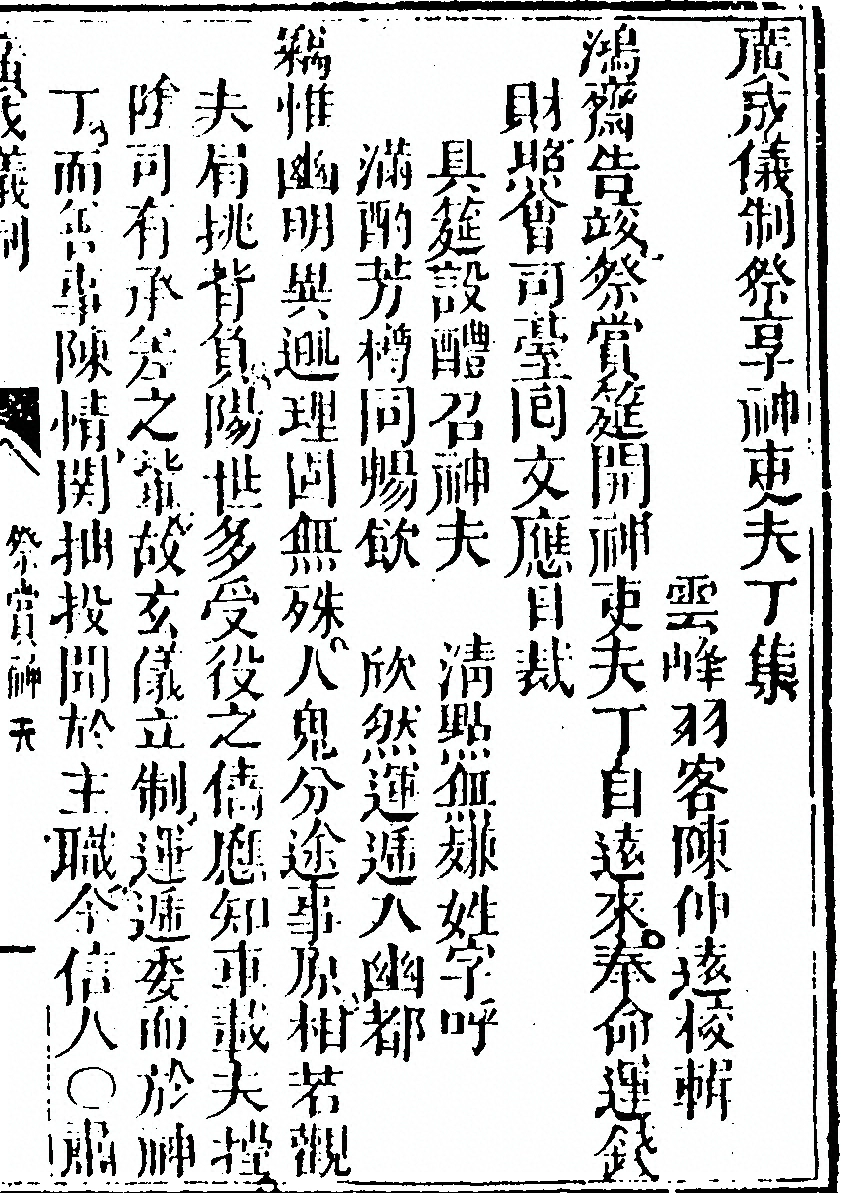 廣成儀制祭享神吏夫丁集
雲峰羽客陳仲遠校輯
鴻齋告竣祭賞筵開神吏夫丁自遠來奉命運錢
財照會司臺囘文應自裁
具筵設醴召神夫 淸點無嫌姓字呼
滿酌芳樽同暢飲 欣然運遞入幽都
竊惟幽明異逈理固無殊人鬼分途事原相若觀
夫肩挑背負陽世多受役之儔應知車載夫㨔
陰司有承差之輩故玄儀立制運遞委而於神
丁而善事陳情関抽投開於主職今信人〇肅
廣成儀制
祭賞神夫